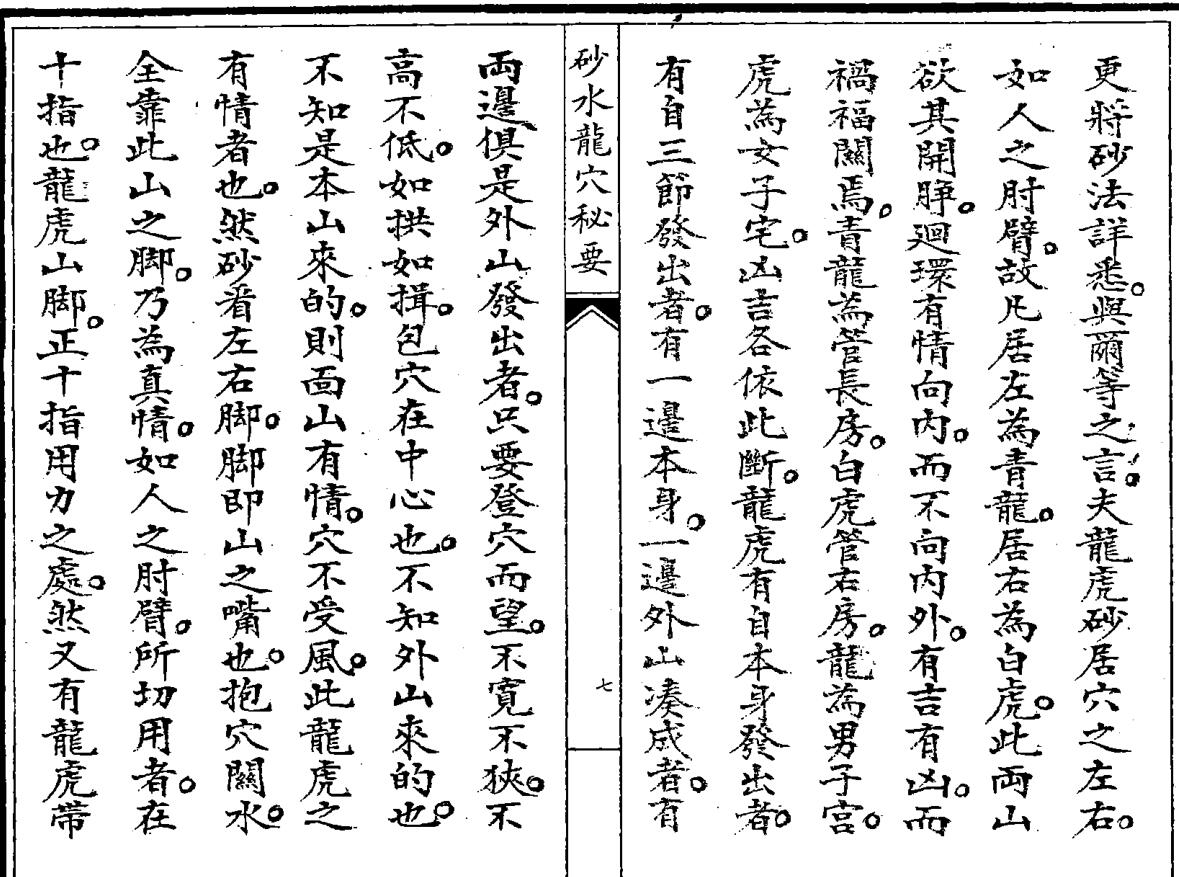 更將砂法詳悉。與爾等之言。夫龍虎砂居穴之左右。
如人之肘臂。故凡居左為青龍。居右為白虎。此両山
欲其開睜。廻環有情向内。而不向内外。有吉有凶。而
禍福關焉。青龍為管長房。白虎管右房。龍為男子宫。
虎為女子宅。凶吉各依此斷。龍虎有自本身發出者。
有自三節發出者。有一邊本身。一邊外山凑成者。有
砂水龍穴秘要
七
両邊俱是外山發出者。只要登穴而望。不寬不狹。不
高不低。如拱如揖。包穴在中心也。不知外山來的也。
不知是本山來的。則面山有情。穴不受風。此龍虎之
有情者也。然砂看左右脚。脚即山之嘴也。抱穴關水。
全靠此山之脚。乃為真情。如人之肘臂。所切用者。在
十指也。龍虎山脚。正十指用力之處。然又有龍虎帶